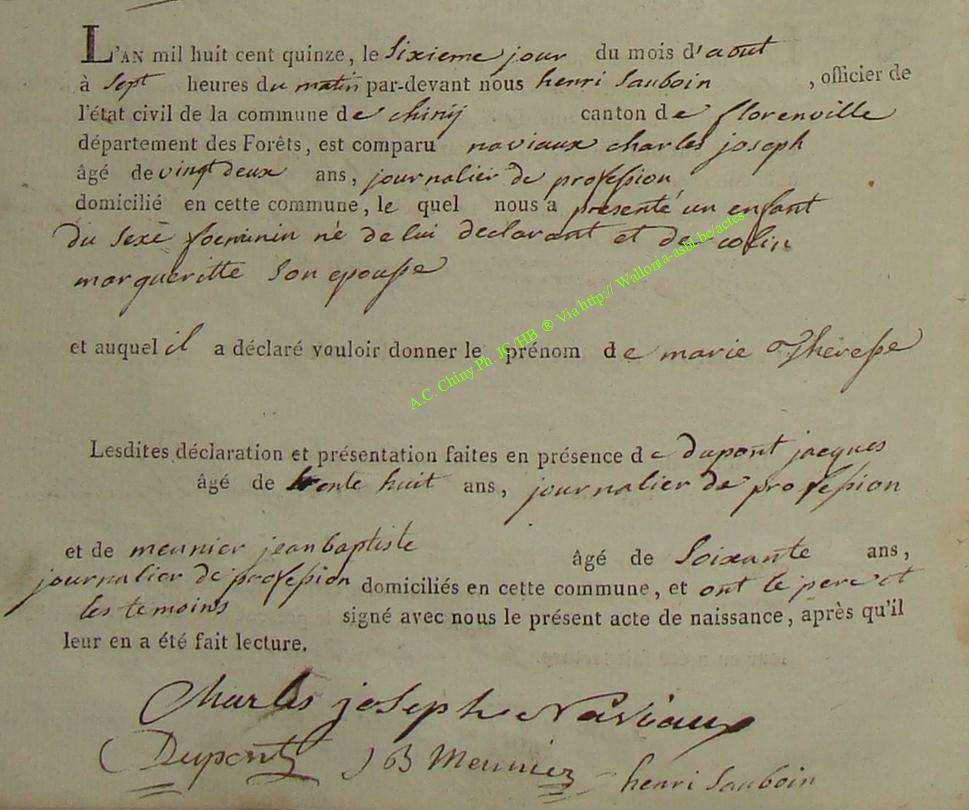 L'AN mil huit cent quinze, le sixieme jour du mois d'aout
à sept heures du matin par-devant nous henri sauboin , officier de
l'état civil de la commune de chiny canton de florenville
département des Forêts, est comparu naviaux charles joseph
âgé de vingt deux ans, journalier de profession
domicilié en cette commune, le quel nous a presenté un enfant
du sexe foeminin né de lui declarant et de colin
margueritte son epouse
et auquel il a déclaré vouloir donner le prénom de marie Therese
Lesdites déclaration et présentation faites en présence de dupont jacques
âgé de trente huit ans, journalier de profession
et de meunier jean baptiste âgé de soixante ans,
journalier de profession domiciliés en cette commune, et ont le pere et
les temoins signé avec nous le présent acte de naissance, après qu'il
leur en a été fait lecture.
Charles joseph Naviaux
Dupont J B Meunier henri sauboin
A.C. Chiny Ph. JG/HB ® Via http:// Wallonia-asbl.be/actes